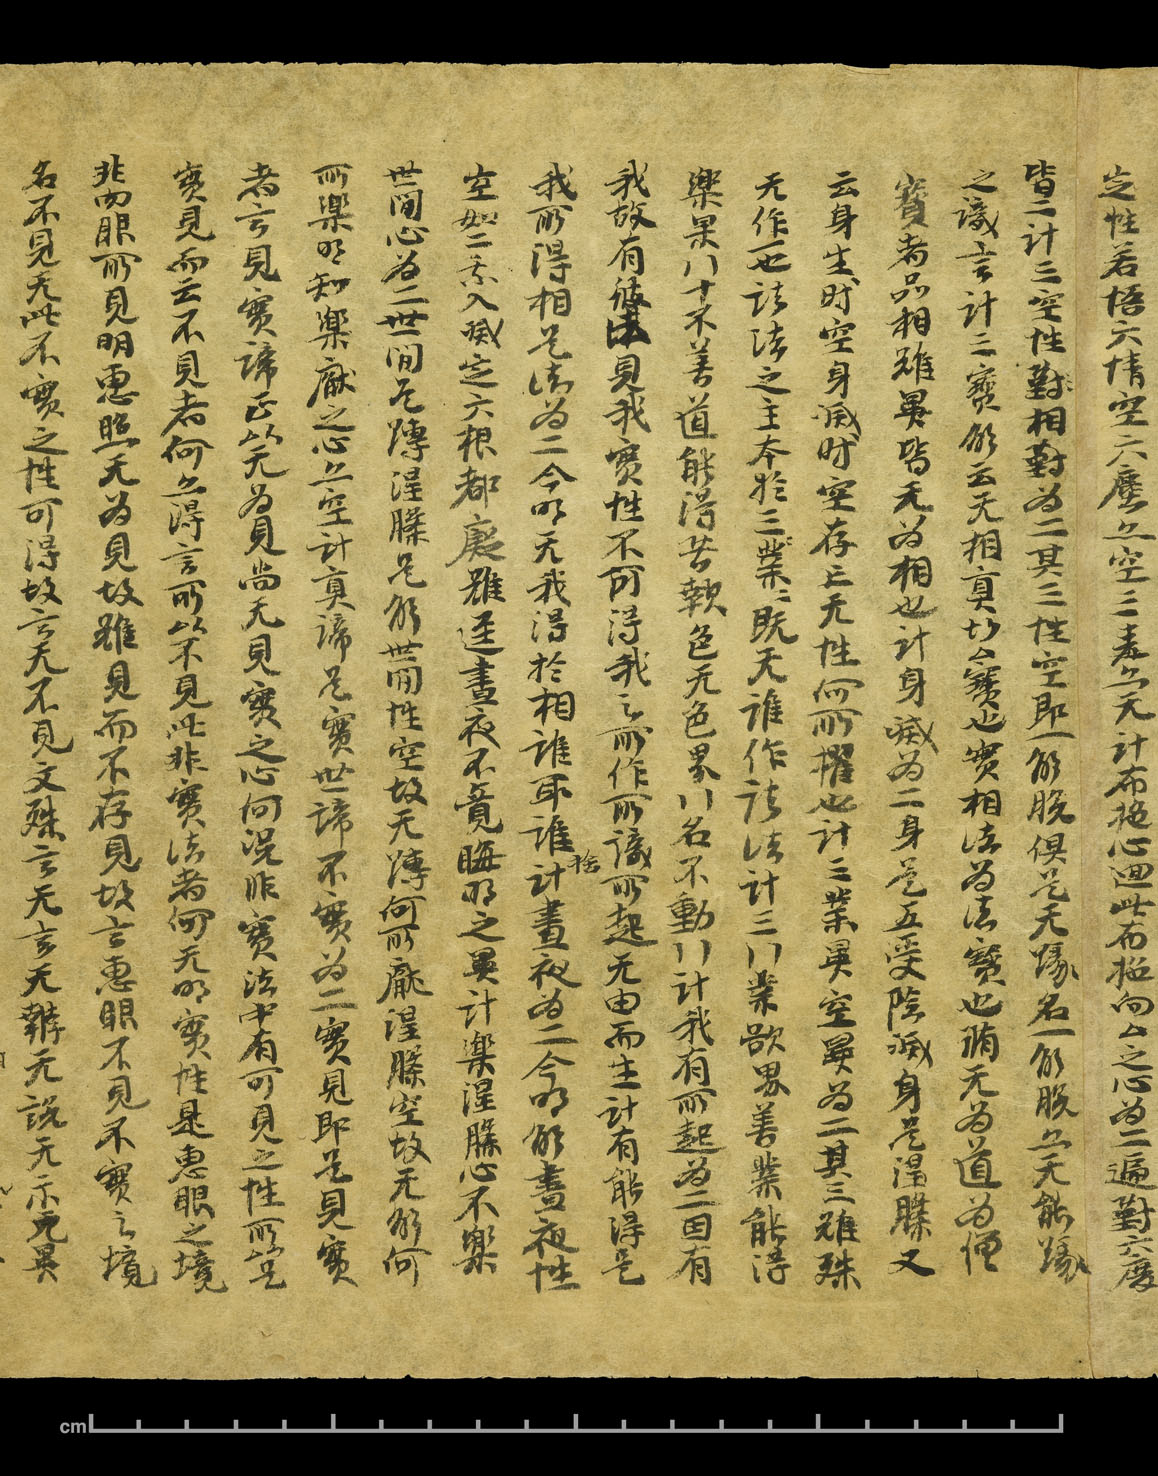 定性若悟六情空六塵亦空二表亦无計布施心迴此布施向亠之心為二遍對六塵
皆二計三空性對相對為二其三性空即一解脫俱是无緣名一解脫亦无能緣
之識言計三寳解云无相真妙亠寳也實相法為法寳也脩无為道為僧
寳者品相雖異皆无為相也計身滅為二身是五受陰滅身是涅槃又
云身生時空身滅時空存亡无性何所懼也計三業異空異為二其三雖殊
无作一也諸法之主本於三業〻既无誰作諸法計三行業欲界善業能得
樂果行十不善道能得苦報色无色界行名不動行計我有所起為二因有
我故有彼見我實性不可得我之所作所識所起无由而生計有能得是
我所得相是法為二今明无我得於相誰取誰捨計晝夜為二今明解晝夜性
空如二乘入滅定六根都廢雖逕晝夜不覺晦明之異計樂涅槃心不樂
世間心為二世間是縛涅槃是解世間性空故无縛何所厭涅槃空故无解何
所樂明知樂厭之心亦空計真諦是實世諦不實為二實見即是見實
者言見實諦正以无為見尚无見實之心何況非實法中有可見之性所以
實見而云不見者何亦得言所以不見此非實法者何无明實性是惠眼之境
非肉眼所見明惠照无為見故雖見而不存見故言惠眼不見不實之境
名不見无此不實之性可得故言无不見文殊言无言无辯无說无示无異